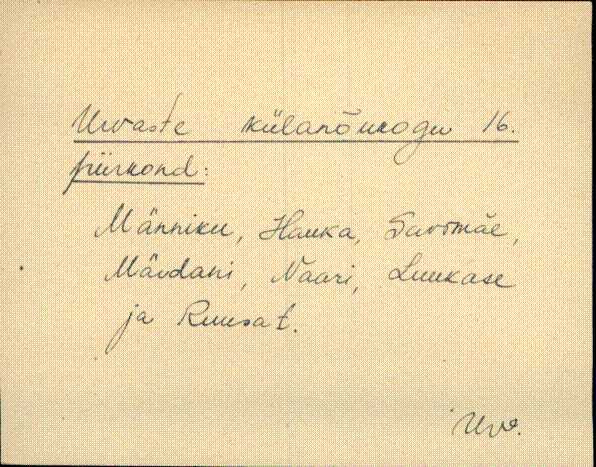 Urvaste külanõukogu 16.
piirkond:
Männiku, Hauka, Savimäe,
Märdani, Naari, Luukase
ja Ruusat.
Urv.